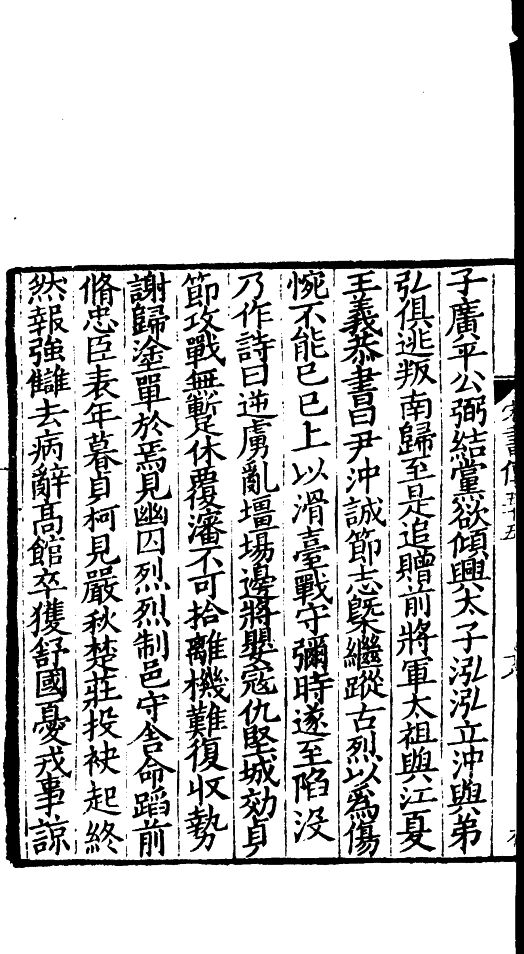 子廣平公弼結黨欲傾興太子泓泓立沖與弟
弘俱逃叛南歸至是追贈前將軍太祖與江夏
王義恭書曰尹沖誠節志槩繼蹤古烈以爲傷
惋不能已已上以滑臺戰守彌時遂至陷没
乃作詩曰逆虜亂壃場邊將嬰寇仇堅城効貞
節攻戰無暫休覆瀋不可拾離機難復收勢
謝歸塗單於焉見幽囚烈烈制邑守舍命蹈前
脩忠臣表年暮貞柯見嚴秋楚莊投袂起終
然報強讎去病辭高館卒獲舒國憂戎事諒